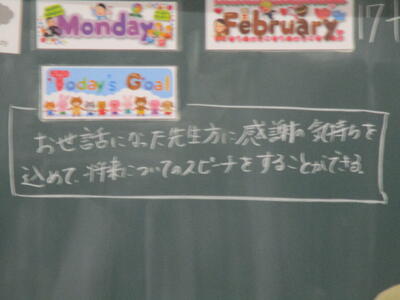 Monday
February
17
Today's Goal
お世話になった先生方に感謝の気持ちを
込めて、将来についてのスピーチをすることができる。